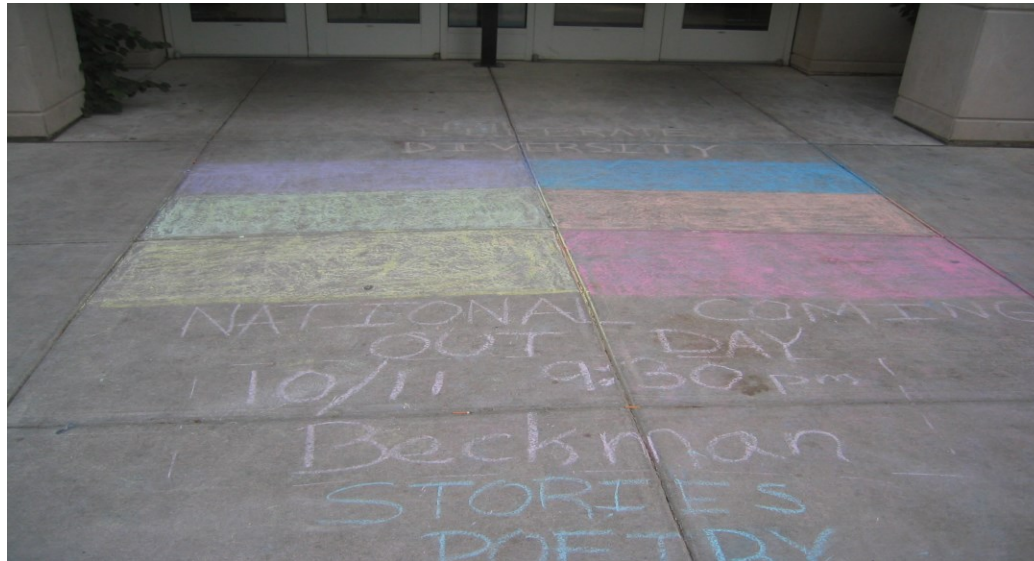 DIVERSITY
NATIONAL COMING
OUT DAY
10/11 9:30 pm
Beckman
STORIES
POETRY